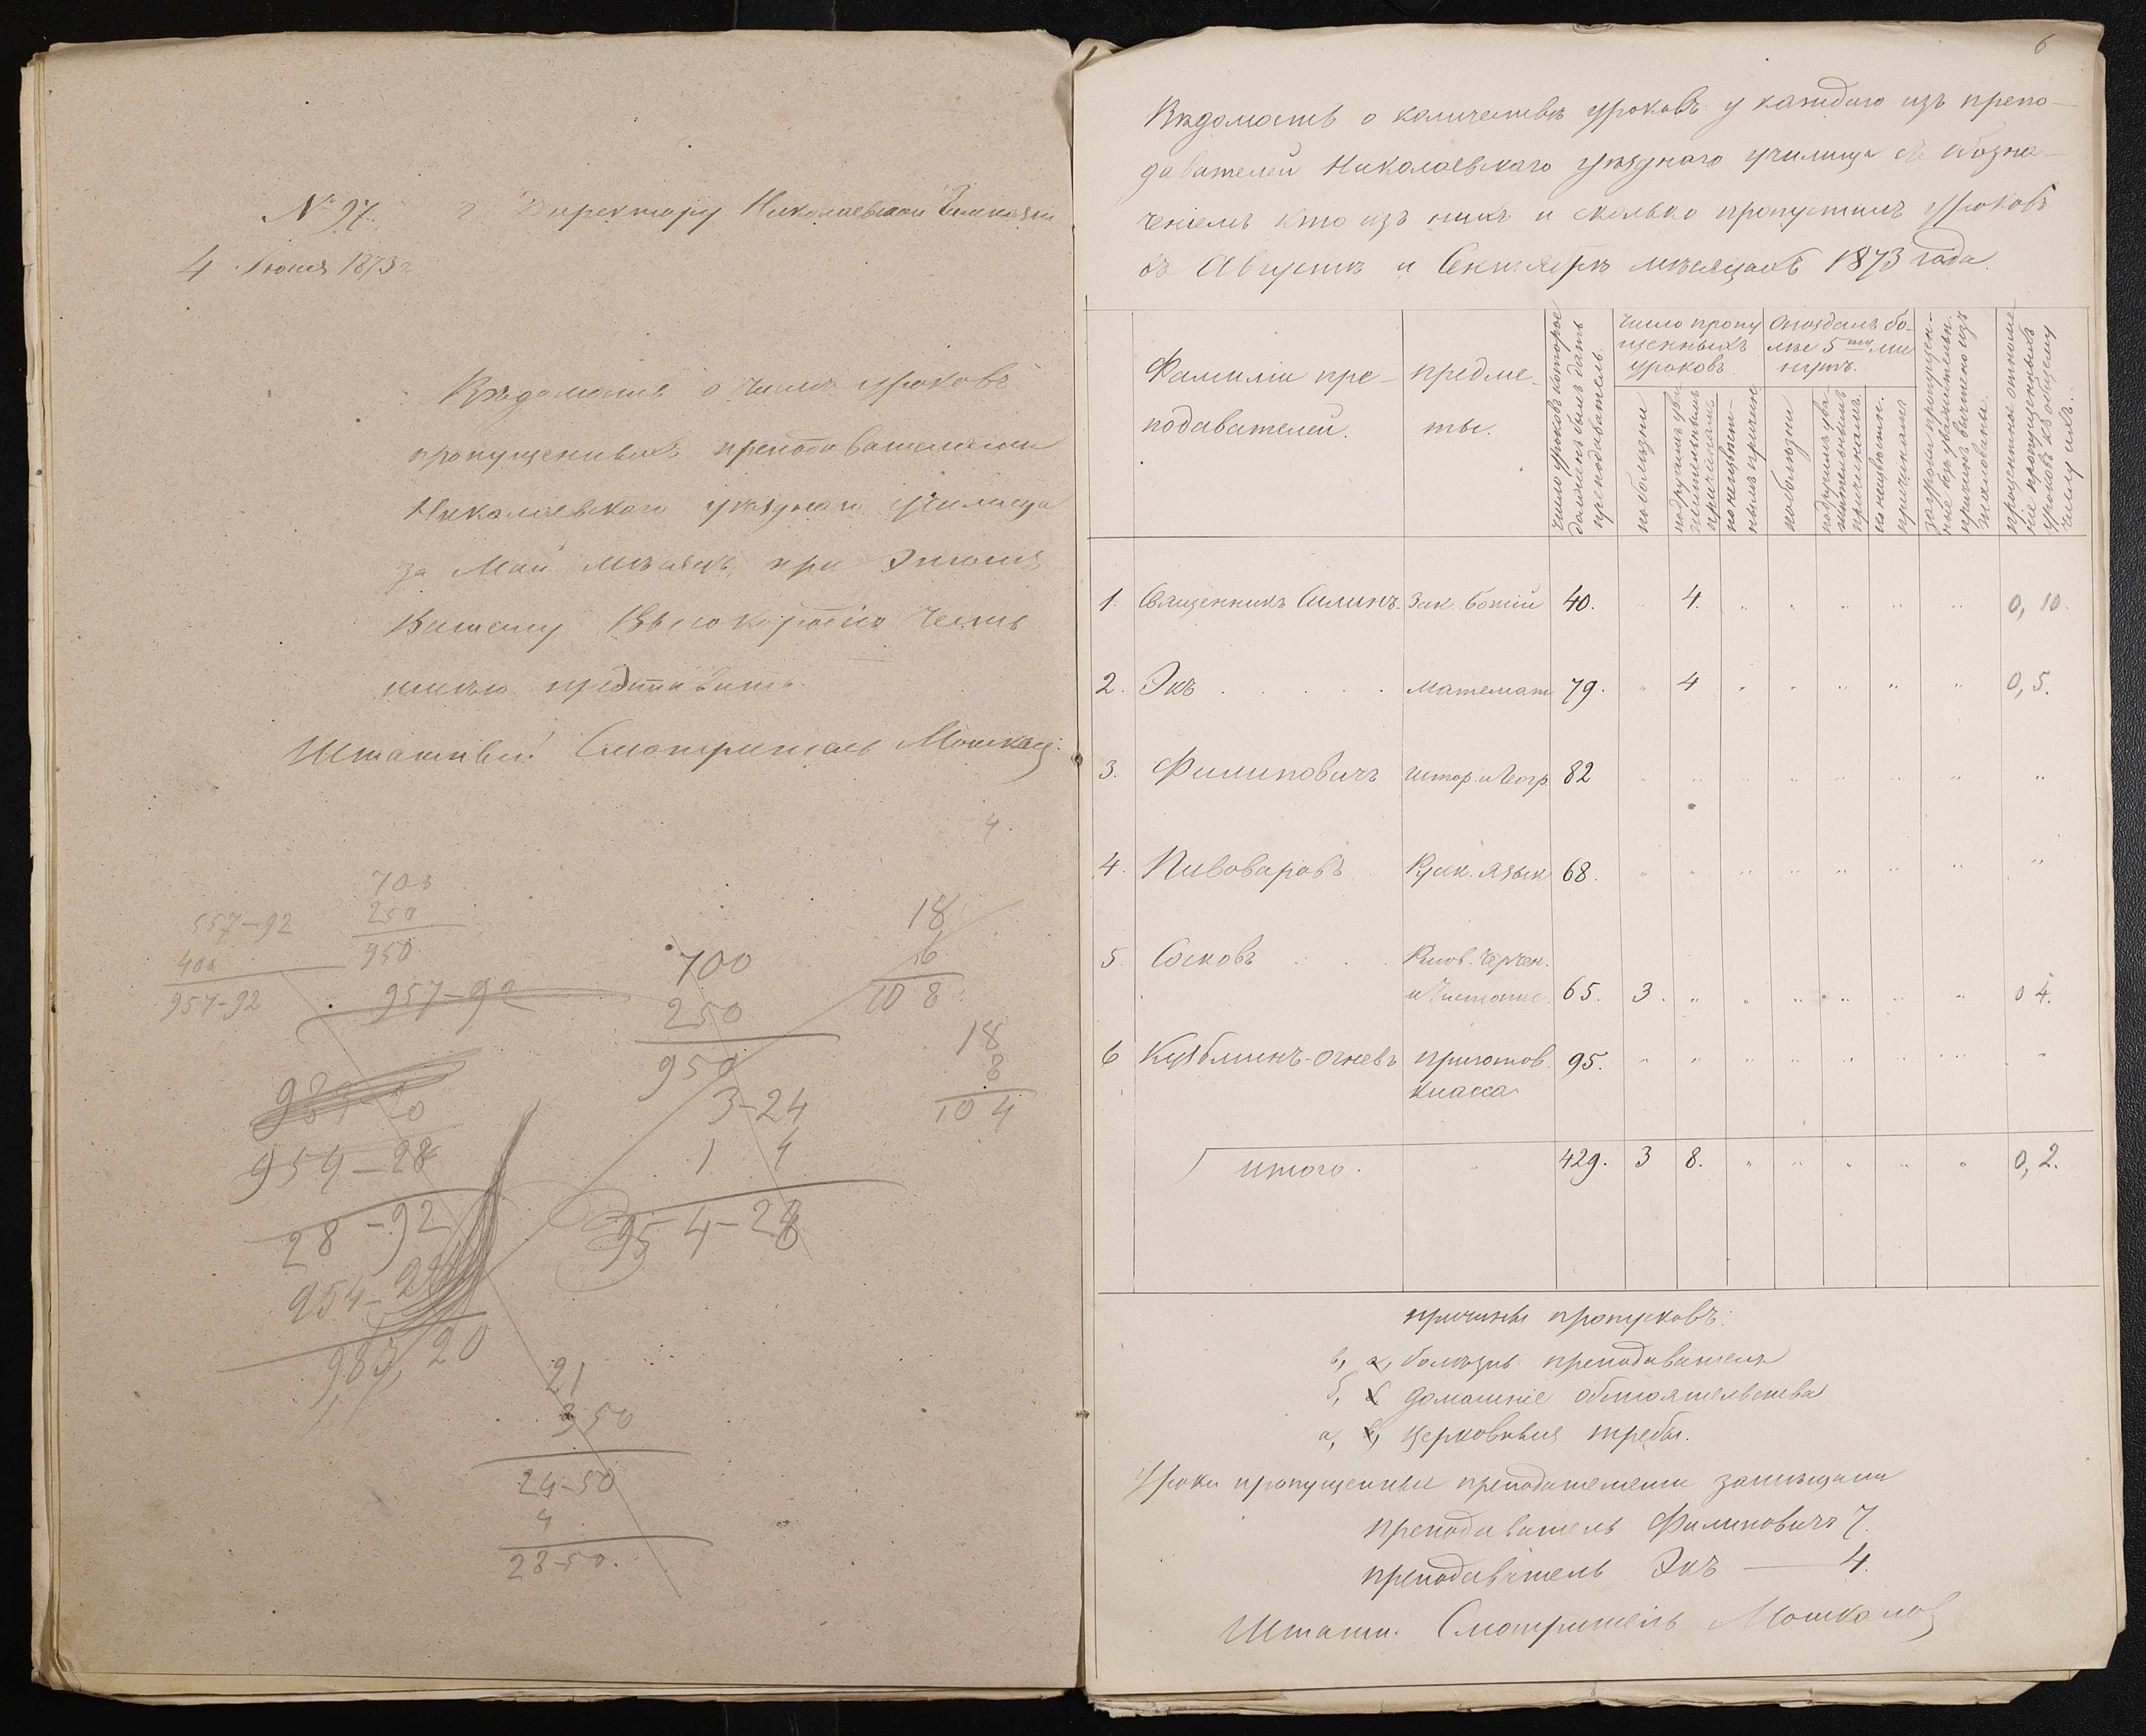 № 97. г Директору Николаевской Гимназіи
4 Іюня 1873 г
Вѣдомость о числѣ уроковъ
пропущенныхъ преподавателями
Николаевскаго уѣзднаго училища
за Май мѣсяцъ, при этомъ
Вашему Высокородію честь
имѣю представить.
Штатный Смотритель
4.
703
250
950
557-92
400
957-92
957-92
700
250
950
3-24
1 4
954-28
18
6
108
18
8
104
954-28
28-92
954-28
983,20
21
350
24-50
4
28-50.
6
Вѣдомость о количествѣ уроковъ у каждаго изъ препо-
давателей Николаевскаго уѣзднаго училища съ обозна-
ченіемъ кто изъ нихъ и сколько пропустилъ уроковъ
въ Августѣ и Сентябрѣ мѣсяцахъ 1873 года.
Фамиліи пре-
подавателей.
предме-
ты.
число уроковъ которое
долженъ былъ дать
преподаватель
Число пропу
щенныхъ
уроковъ
по болѣзни
по другимъ ува
жительнымъ
причинамъ
по неизвѣст-
нымъ причин
Опоздалъ бо-
лѣе 5ти ми
нутъ.
по болѣзни
по другимъ ува
жительнымъ
причинамъ.
по неизвѣстн.
причинамъ
за уроки пропущен-
ные безъ уважительн.
причинъ вычтено изъ
жалованья.
процентное отноше
ніе пропущенныхъ
уроковъ къ общему
числу ихъ.
1. Священникъ Силинъ. Зак. Божій 40. " 4. " " " " " 0,10.
2. Экъ . . . . . Математ 79. " 4 " " " " " 0,5.
3. Филиповичъ Истор. и Геогр. 82 " " " " " " " "
4. Пивоваровъ Русск. языкъ 68. " " " " " " " "
5. Сосковъ . . Рисов. Черчен.
и Чистопис. 65. 3. " " " " " " 0 4.
6 Кузьминъ-Огневъ приготов. 95. " " " " " " " "
класса
итого. " 429. 3 8. " " " " " 0,2.
причины пропусковъ:
в, а, болѣзнь преподавателя
б, домашнія обстоятельства
а, церковныя требы.
Уроки пропущенные преподавателеми замѣщали
преподаватель Филиповичъ 7.
преподаватель Экъ — 4.
Штатн. Смотритель